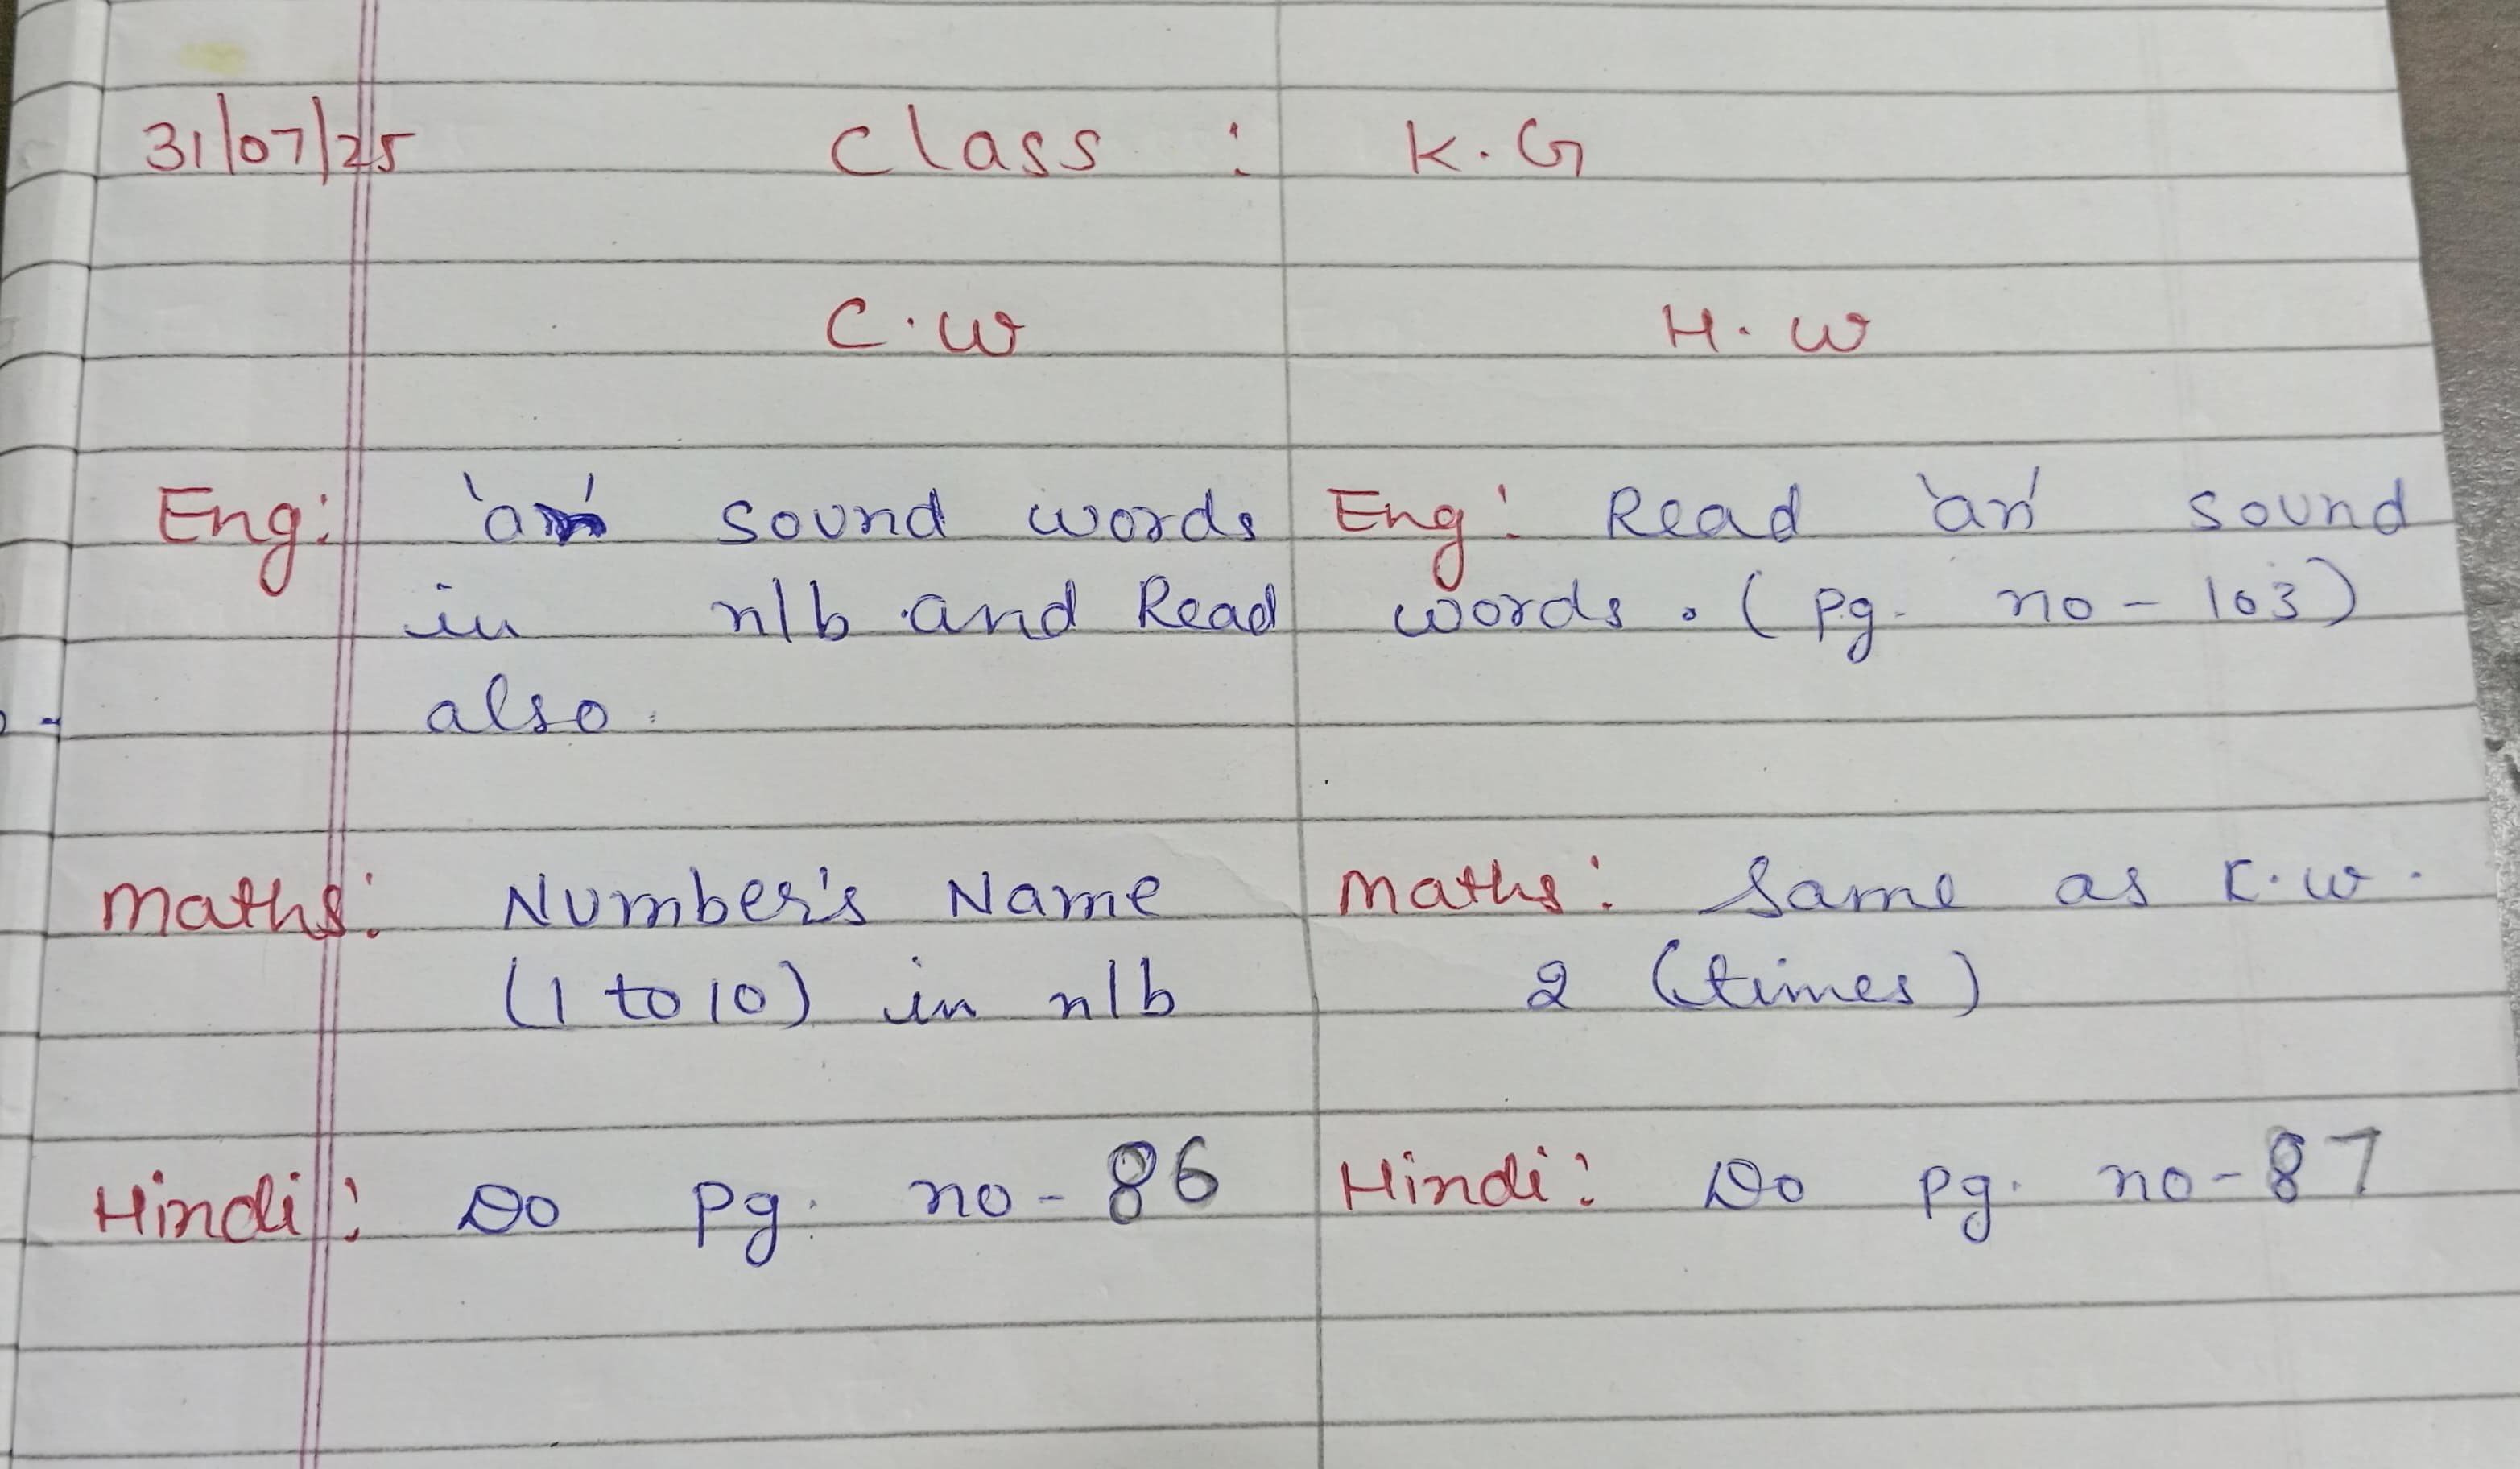 31/07/25 Class : K.G
C.W H.W
Eng: 'an' sound words
in n/b and Read
also.
Eng: Read 'an' sound
words. (pg. no - 103)
Maths: Number's Name
(1 to 10) in n/b
Maths: Same as C.W.
2 (times)
Hindi: Do pg. no - 86
Hindi: Do pg. no - 87